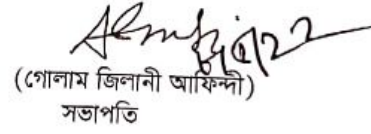 (গোলাম জিলানী আফিন্দী)
সভাপতি